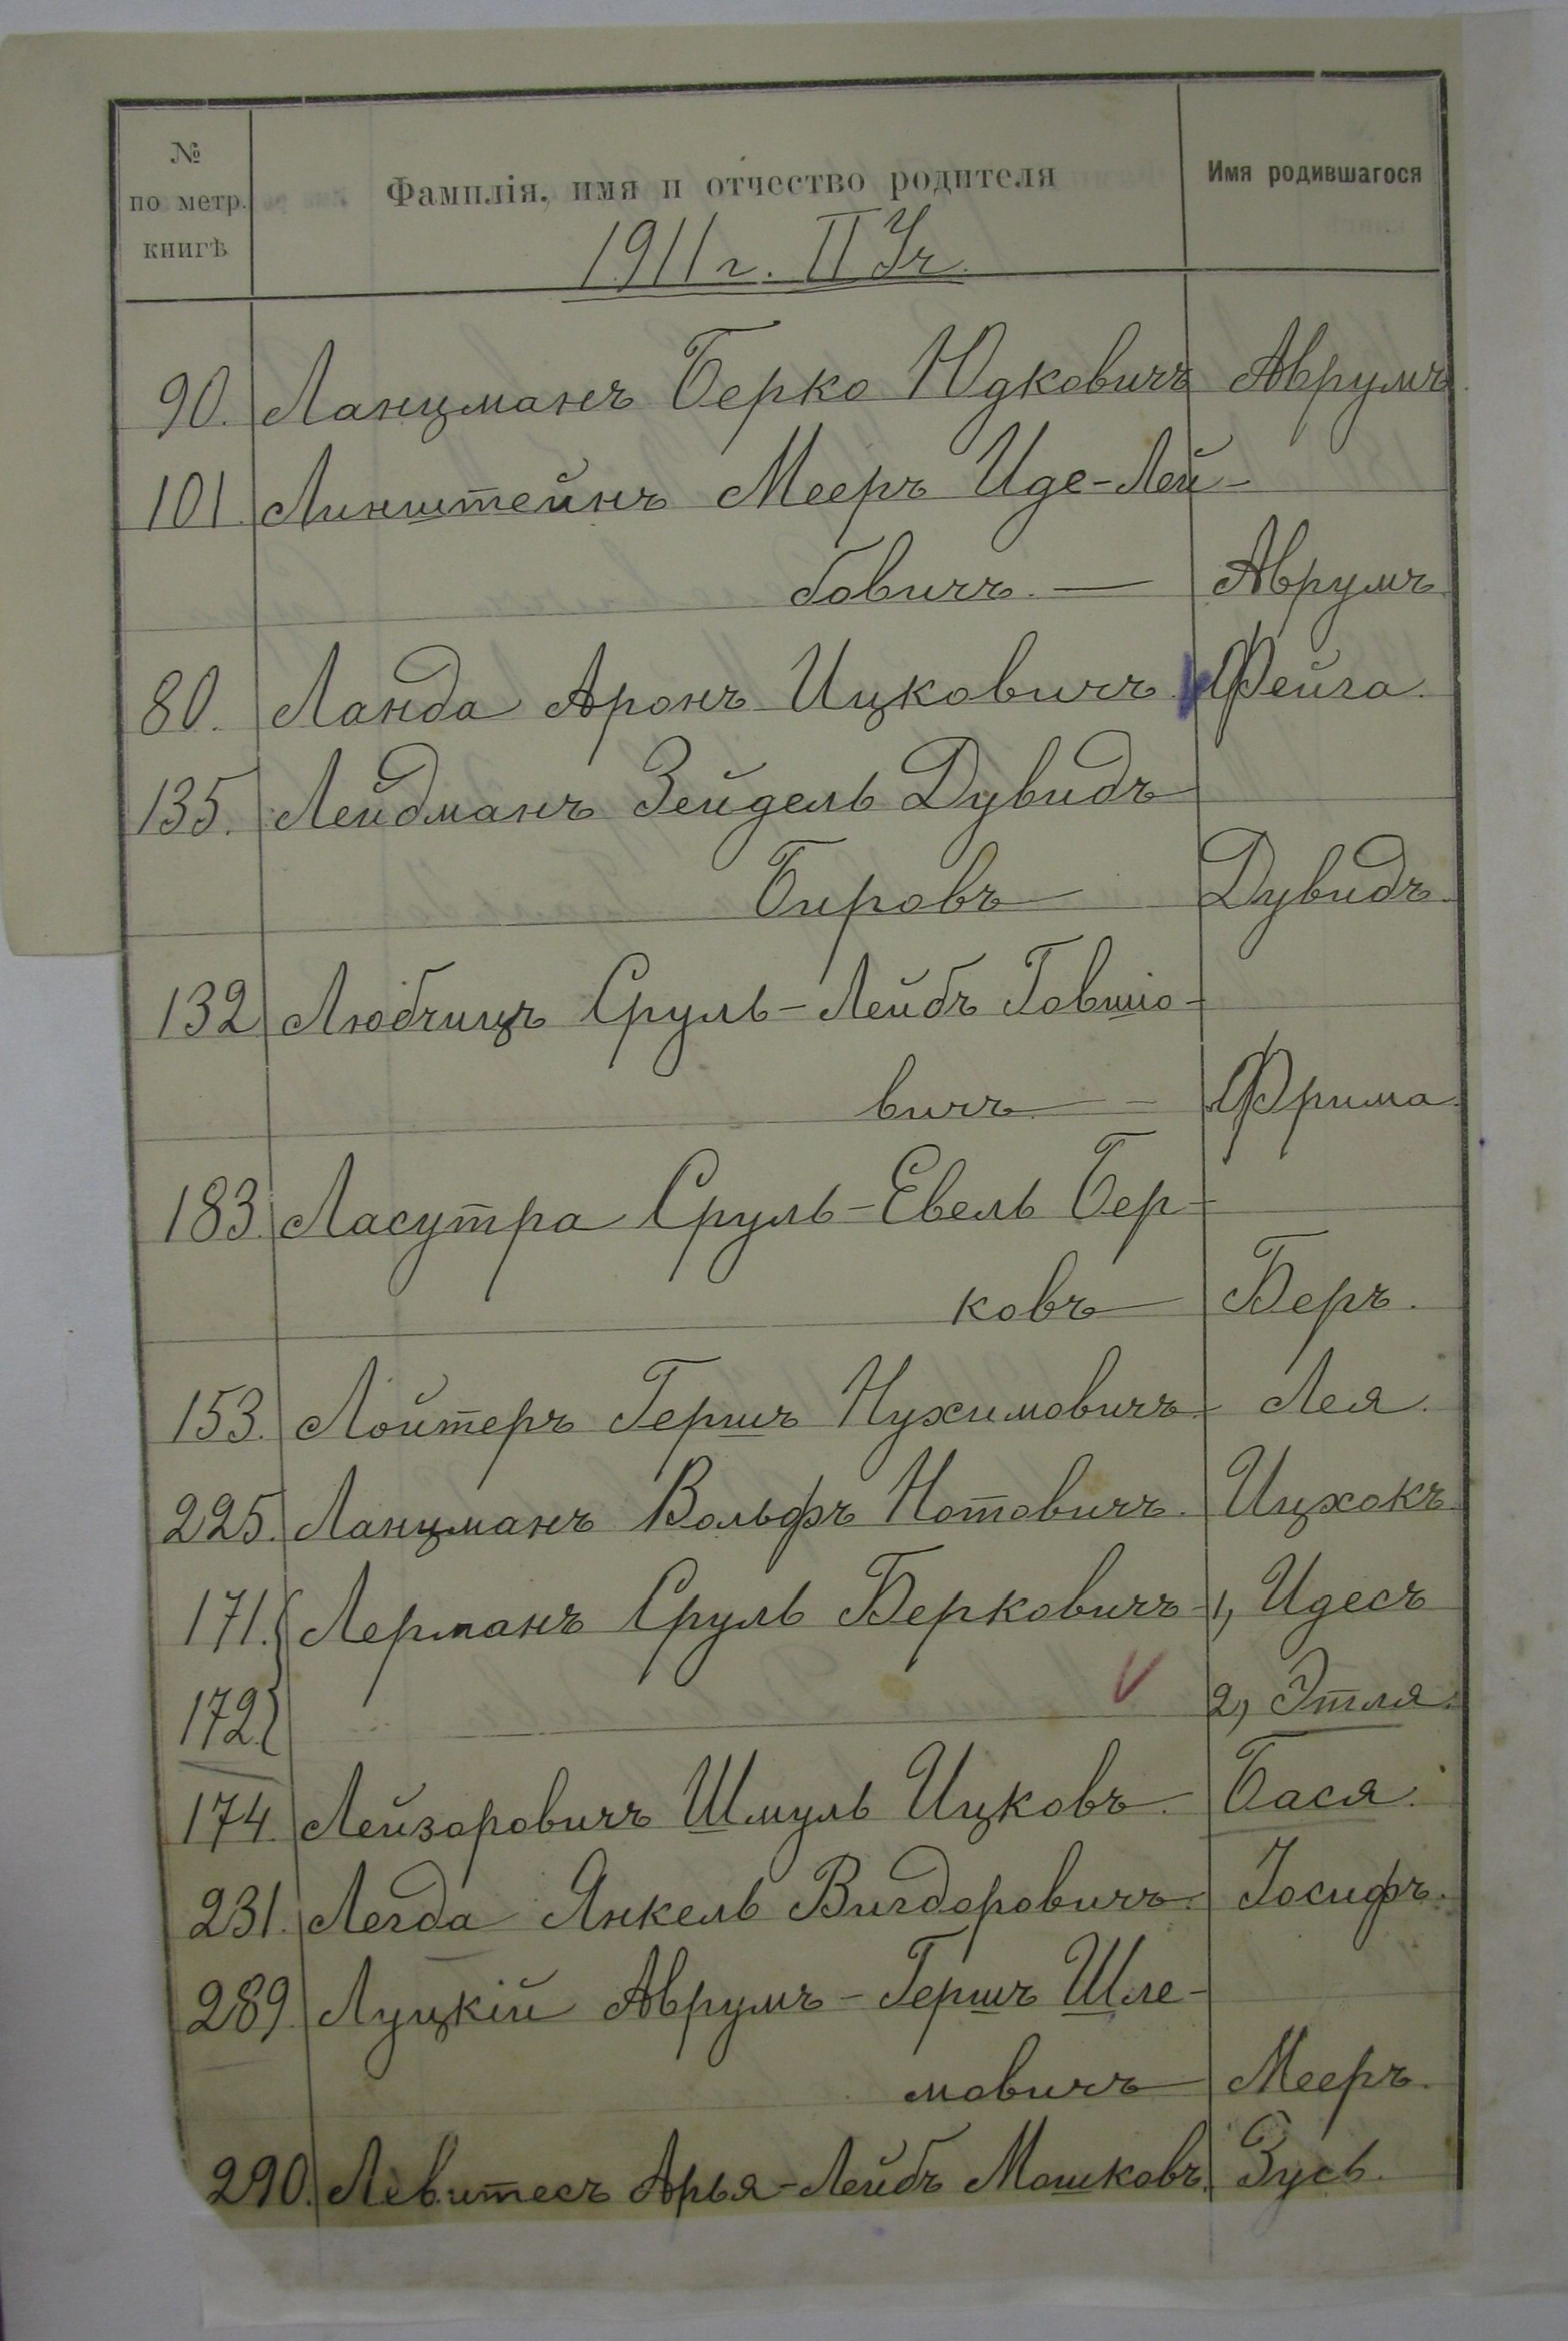 № по метр. книгѣ Фамилія, имя и отчество родителя Имя родившагося
1911 г. II Уч.
90. Ланцманъ Берко Юдковичъ Аврумъ.
101 Линштейнъ Мееръ Иде-Лей-
бовичъ. — Аврумъ.
80. Ланда Аронъ Ицковичъ. Фейга.
135. Лейдманъ Зейдель Дувидъ
Бировъ — Дувидъ.
132 Любчицъ Сруль-Лейбъ Говшіо-
вичъ — Фрима.
183. Ласутра Сруль-Евель Бер-
ковъ — Беръ.
153. Лойтеръ Гершъ Нухимовичъ. Лея.
225. Ланцманъ Вольфъ Нотовичъ. Ицхокъ
171. Лерманъ Сруль Берковичъ 1, Идесъ
172 2, Этля.
174. Лейзоровичъ Шмуль Ицковъ. Бася.
231. Легда Янкель Вигдоровичъ. Іосифъ.
289. Луцкій Аврумъ-Гершъ Шле-
мовичъ Мееръ.
290. Левитесъ Арья-Лейбъ Мошковъ. Зусь.